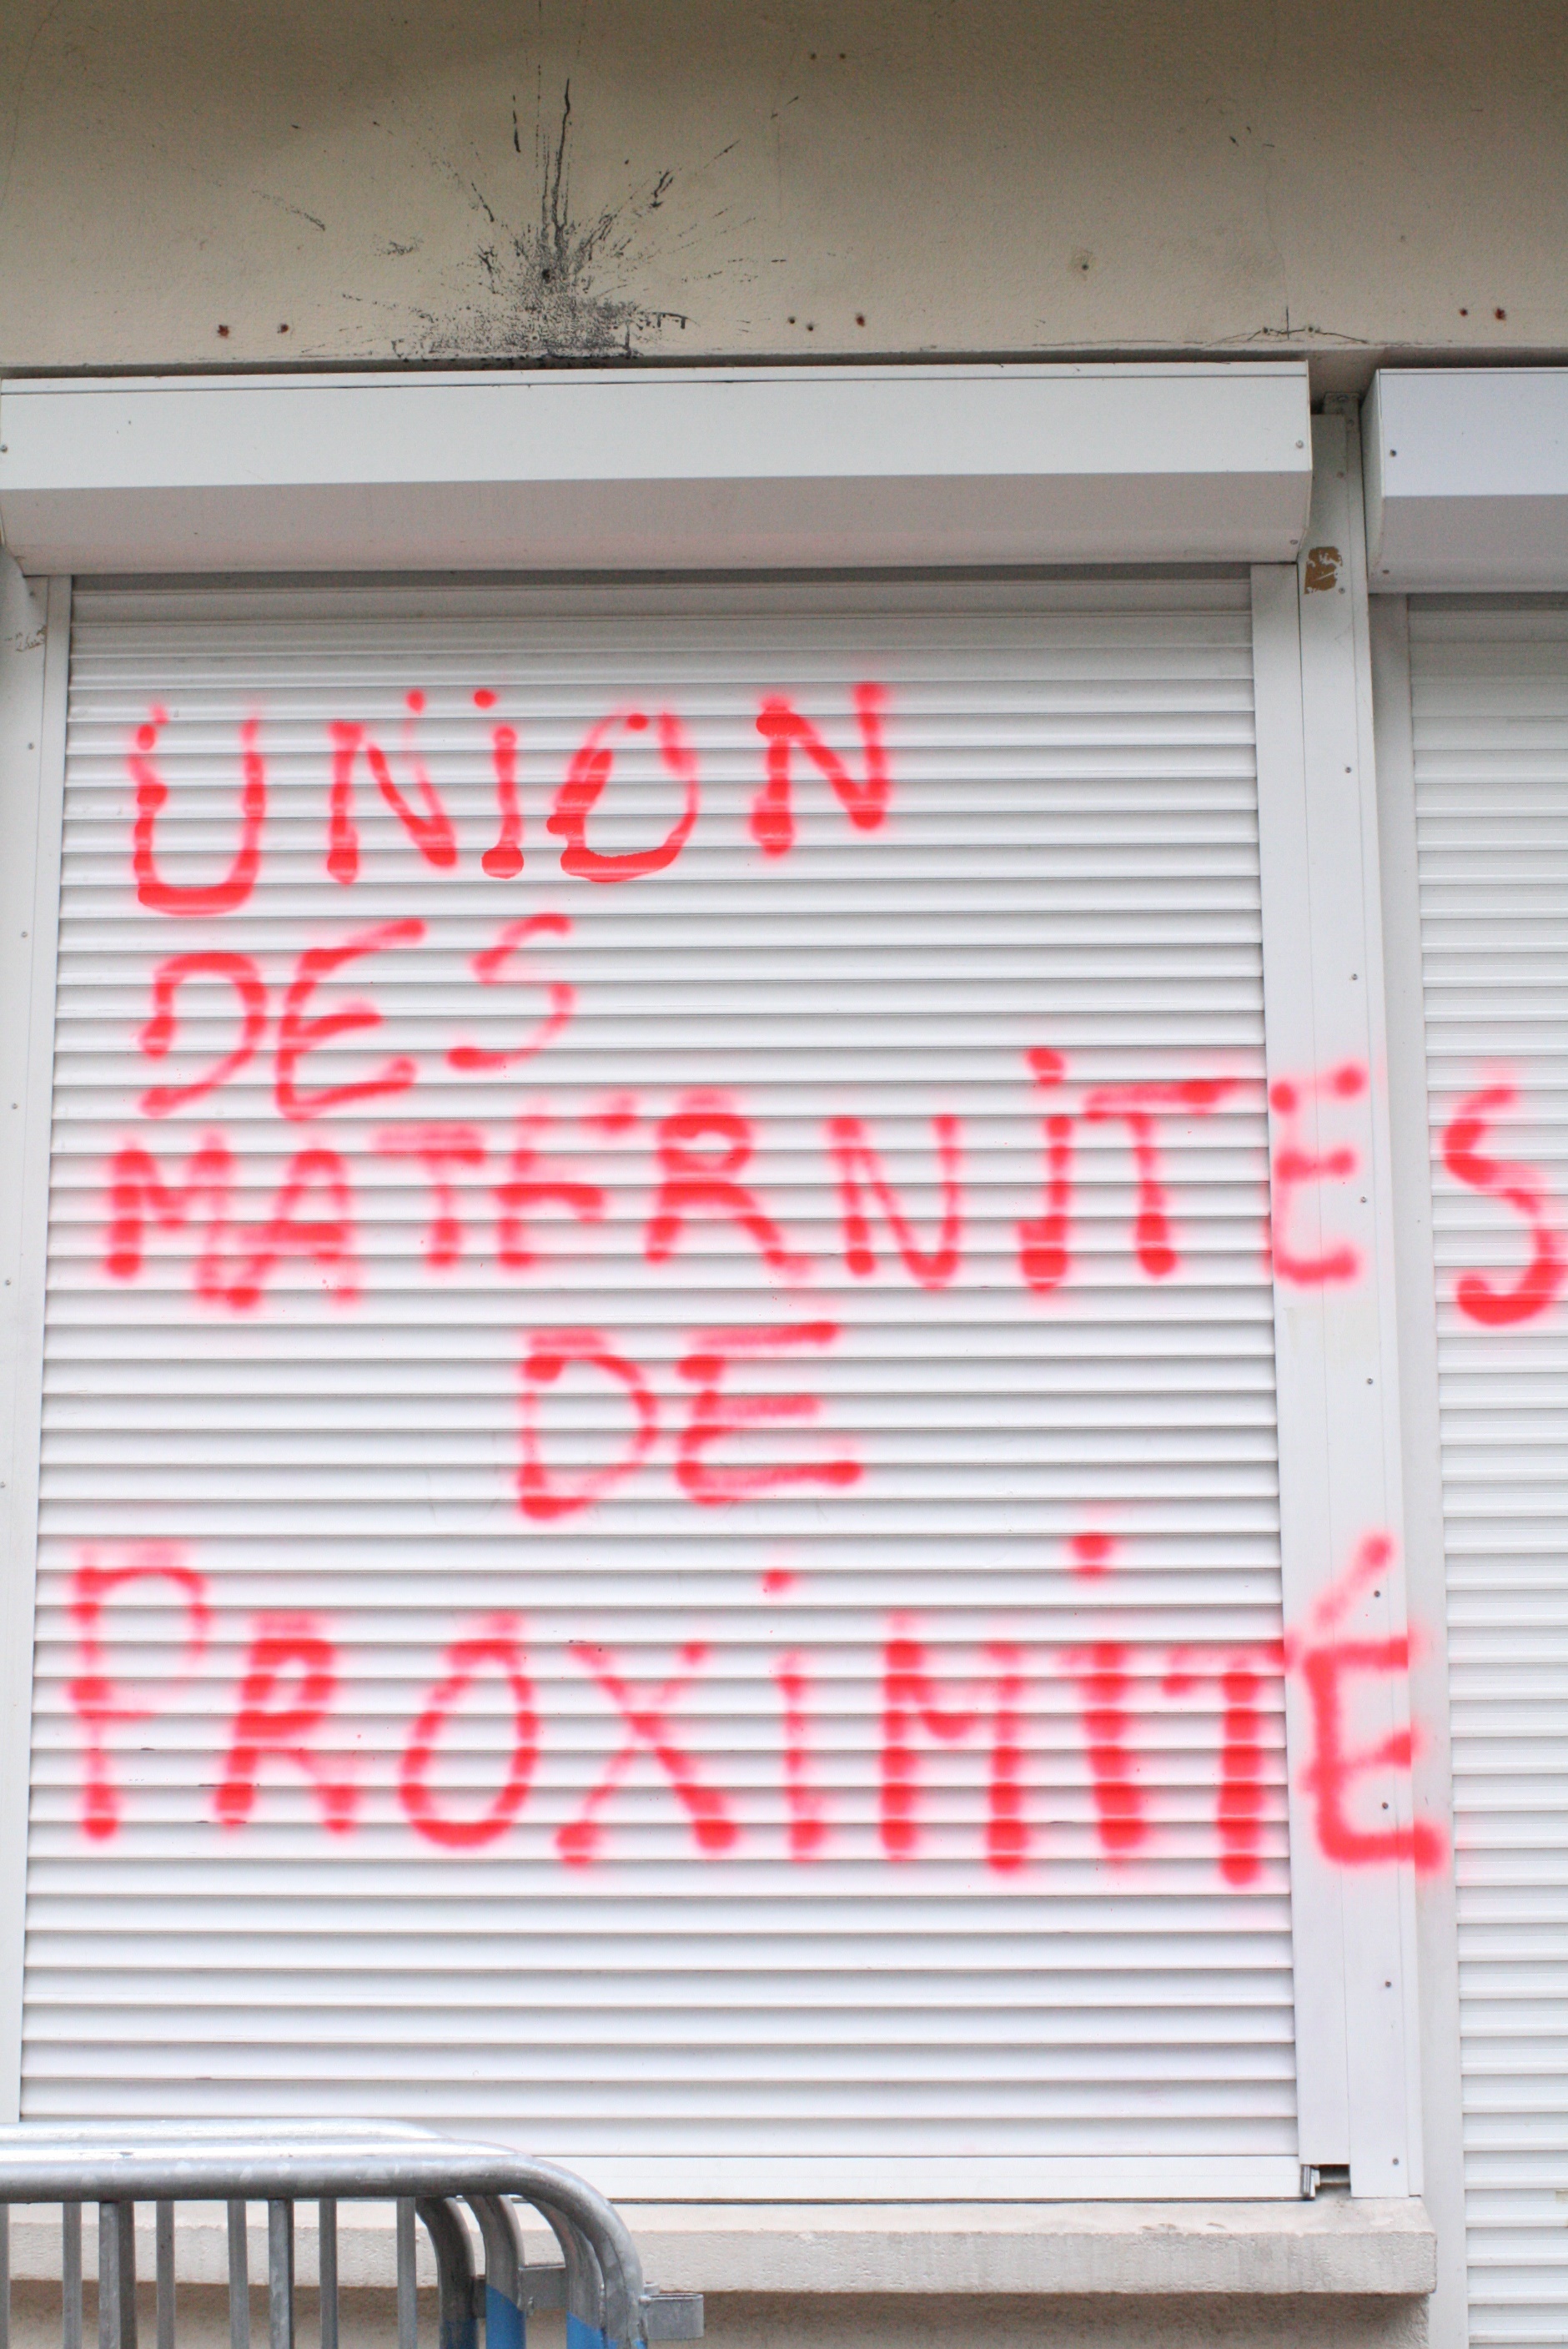 UNiON
DES
MATERNiTES
DE
PROXiMiTÉ